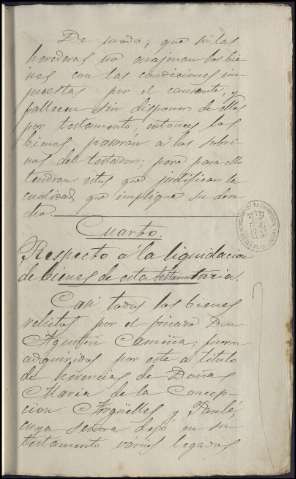 De modo, que si las
herederas no enajenan los bie-
nes con las condiciones im-
puestas por el causante, y
fallecen sin disponer de ellos
por testamento, entonces los
bienes pasarán á los sobri-
nos del testador; pero para ello
tendran estos que justificar la
cualidad que implique su dere-
cho.
Cuarto
Respecto á la liquidacion
de bienes de esta testamentaria.
Casi todos los bienes
relictos por el finado Don
Agustin fueron
adquiridos por este a titulo
de herencia de Doña
Maria de la Concep-
cion Argüelles y
cuya señora dejó en su
testamento varios legados